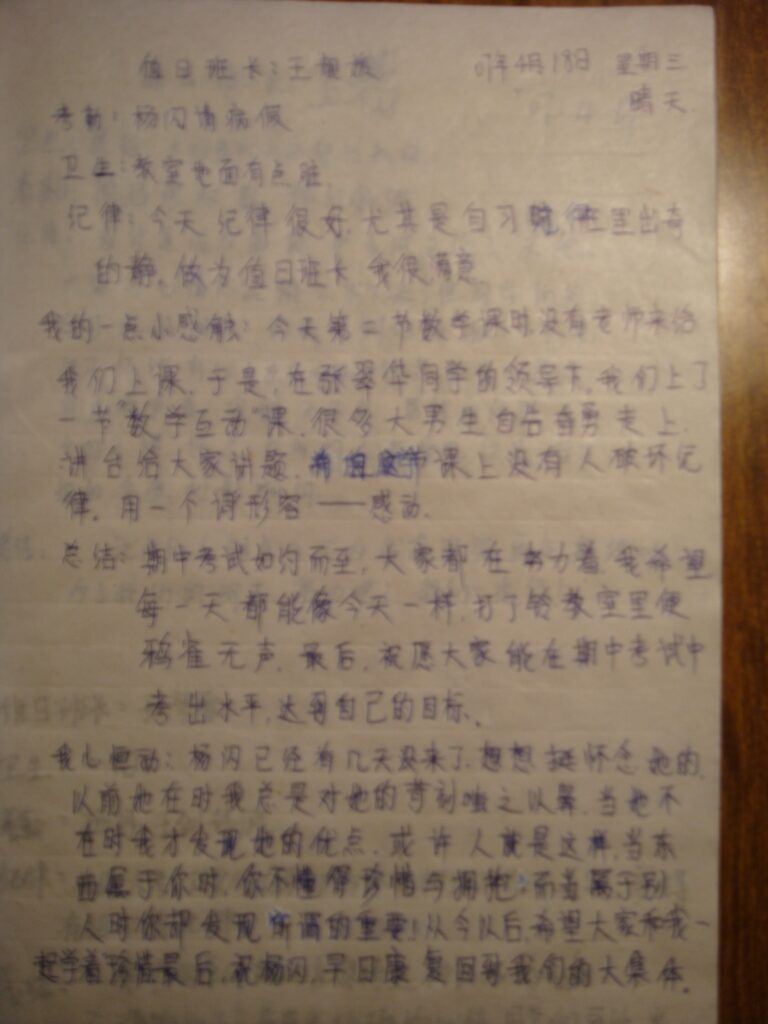 值日班长:王 07年4月18日 星期三
晴天.
考勤:杨闪请病假
卫生:教室地面有点脏.
纪律:今天纪律很好,尤其是自习教室里出奇
的静,做为值日班长 我很满意
我的一点小感触:今天第二节数学课时没有老师来给
我们上课,于是,在张翠华同学的领导下,我们上了
一节"数学互动"课,很多大男生自告奋勇走上
讲台给大家讲题,节课上没有人破坏纪
律,用一个词形容——感动.
总结:期中考试如约而至,大家都在努力着,我希望
每一天都能像今天一样,打了铃教室里便
鸦雀无声,最后,祝愿大家能在期中考试中
考出水平,达到自己的目标.
我心恒动:杨闪已经有几天没来了,想想挺怀念她的,
以前她在时我总是对她的苛刻嗤之以鼻,当她不
在时我才发现她的优点,或许人就是这样,当东
西属于你时,你不懂得珍惜与拥抱,而当属于别
人时你却发现所谓的重要!从今以后,希望大家和我一
起学着珍惜最后,祝杨闪,早日康复回到我们的大集体.